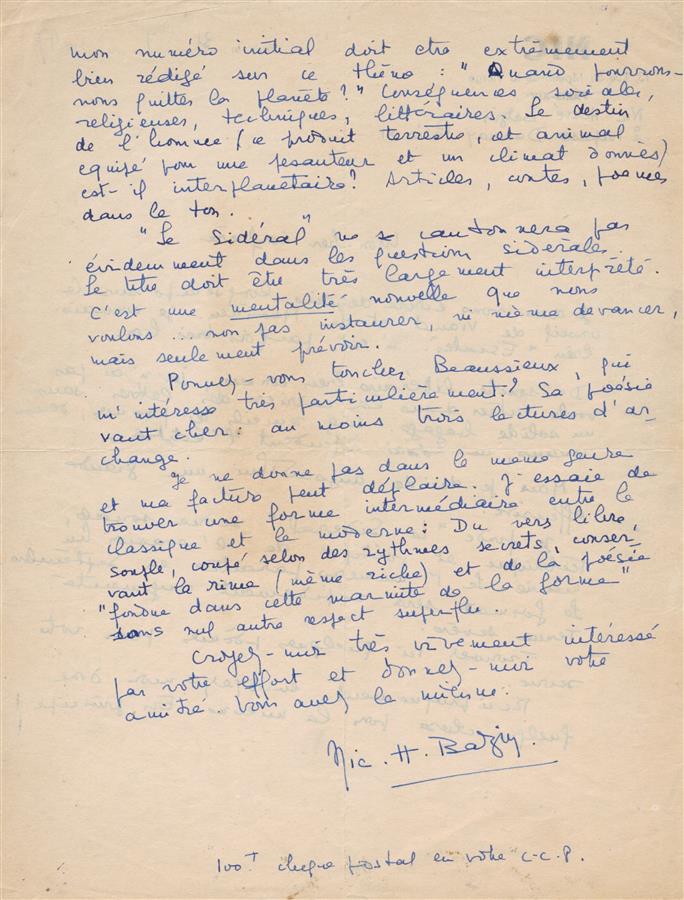 mon numéro initial doit être extrêmement
bien rédigé sur ce thème : "Quand pourrons-
nous quitter la planète ?" Conséquences sociales,
religieuses, techniques, littéraires. Le destin
de l'homme (ce produit terrestre, cet animal
equipé pour une pesanteur et un climat donnés)
est-il interplanétaire? Articles, contes, poèmes
dans le ton.
"Le Sidéral" ne se cantonnera pas
évidemment dans les question sidérales.
Le titre doit être très largement interprété.
C'est une mentalité nouvelle que nous
voulons... non pas instaurer, ni même devancer,
mais seulement prévoir.
Pouvez-vous toucher Beaussieux, qui
m'intéresse très particulièrement? Sa poésie
vaut cher : au moins trois lectures d'ar
change.
Je ne donne pas dans le même genre
et ma facture peut déplaire. J'essaie de
trouver une forme intermédiaire entre le
classique et le moderne : Du vers libre,
souple, coupé selon des rythmes secrets, conser-
vant la rime (même riche) et de la poésie
"fondue dans cette marmite de la forme"
sans nul autre respect superflu.
Croyez-moi très vivement intéressé
par votre effort et donnez-moi votre
amitié. Vous avez la mienne.
Nic. H.
100 chèque postal en votre C.C.P.